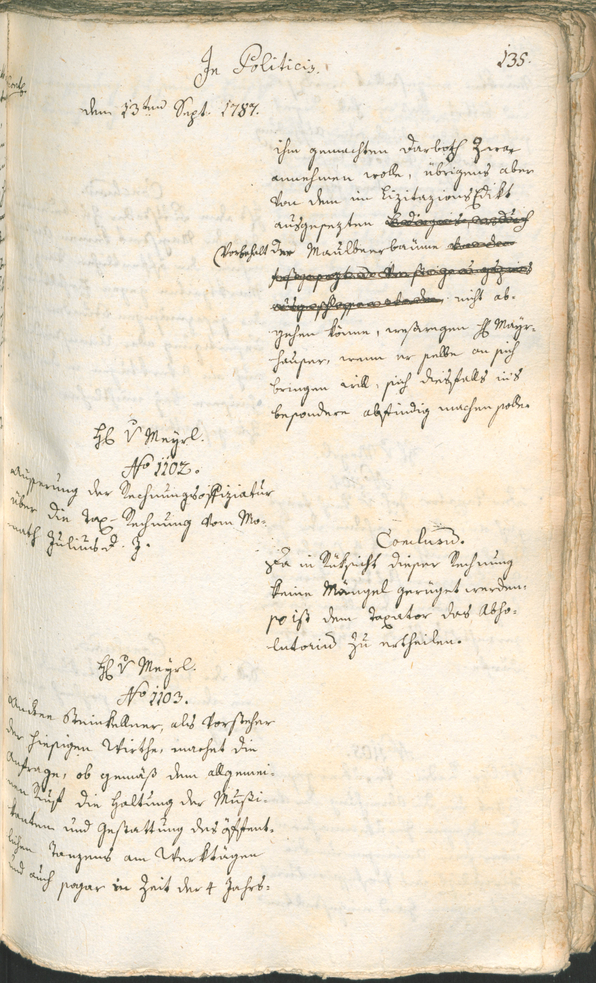 In Politicis.
135.
dem 13ten Sept. 1787.
ihm gemachten Darboth zwar
annehmen wolle, übrigens aber
von dem im Lizitazions Edikt
ausgesezten
Vorbehalt der Maulbeerbäume
nicht ab-
gehen könne, weßwegen H Mayr-
hauser, wenn er selbe an sich
bringen will, sich diesfalls ins
besondere abfindig machen solle.
H v Meyrl.
No 1102.
Äusserung der Rechnungsoffiziatur
über die Tax-Rechnung vom Mo-
nath Julius d. J.
Conclusum.
Da in Rüksicht dieser Rechnung
keine Mängel gerüget werden,
so ist dem Taxator das Abso-
lutorium zu ertheilen.
H v Meyrl.
No 1103.
Andree Steinkellner, als Vorsteher
der hiesigen Wirthe, machet die
Anfrage, ob gemäß dem allgemei-
nen Ruf die Haltung der Musi-
kanten und Gestattung des öffent-
lichen Tanzens am Werktägen
und auch sogar in Zeit der 4 Jahrs-